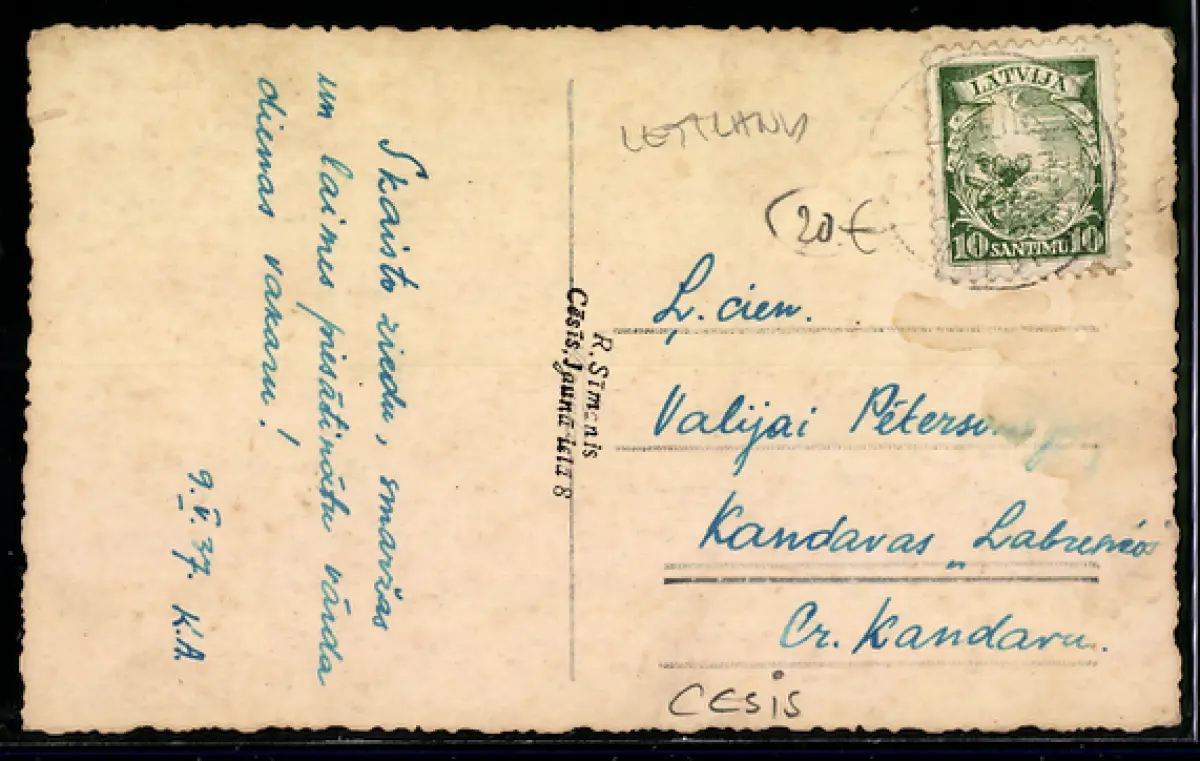 Skaisto ziedu, smaržas
un laimes piesātinātu vārda
dienas vakaru!
9.V.37. K.A.
R. Sīmanis
Cēsis, Jaunā ielā 8
LETTLAND
20.€
LATVIJA
10 SANTIMU 10
Ļ. cien.
Valijai
Kandavas „
Cr. Kandavu.
CESIS